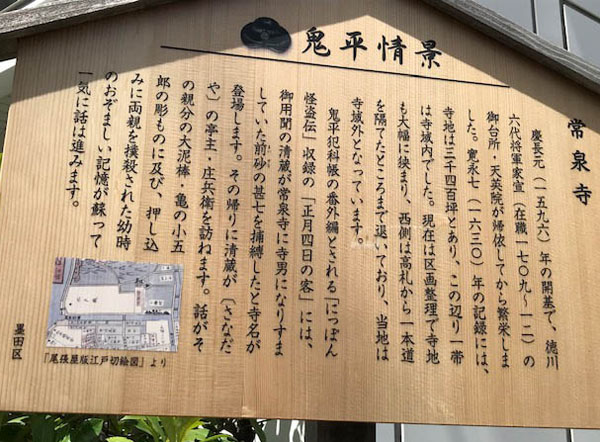 鬼平情景
常泉寺
慶長元（一五九六）年の開基で、徳川
六代将軍家宣（在職一七〇九〜一二）の
御台所・天英院が帰依してから繁栄しま
した。寛永七（一六三〇）年の記録には、
寺地は三千四百坪とあり、この辺り一帯
は寺域内でした。現在は区画整理で寺地
も大幅に狭まり、西側は高札から一本道
を隔てたところまで退いており、当地は
寺域外となっています。
鬼平犯科帳の番外編とされる「にっぽん
怪盗伝」収録の「正月四日の客」には、
御用聞の清蔵が常泉寺に寺男になりすま
していた前砂の甚七を捕縛したと寺名が
登場します。その帰りに清蔵が〔さなだ
や〕の亭主・庄兵衛を訪ねます。話がそ
の親分の大泥棒・亀の小五
郎の彫ものに及び、押し込
みに両親を撲殺された幼時
のおぞましい記憶が蘇って
一気に話は進みます。
『尾張屋版江戸切絵図』より
墨田区